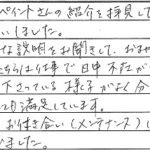 ペイントさんの紹介を拝見して
いしました。
な説明をお聞きして、おまか
たちは仕事で日中不在が
下さっている様子がよく分
満足しています。
お付き合い(メンテナンス)
しました。